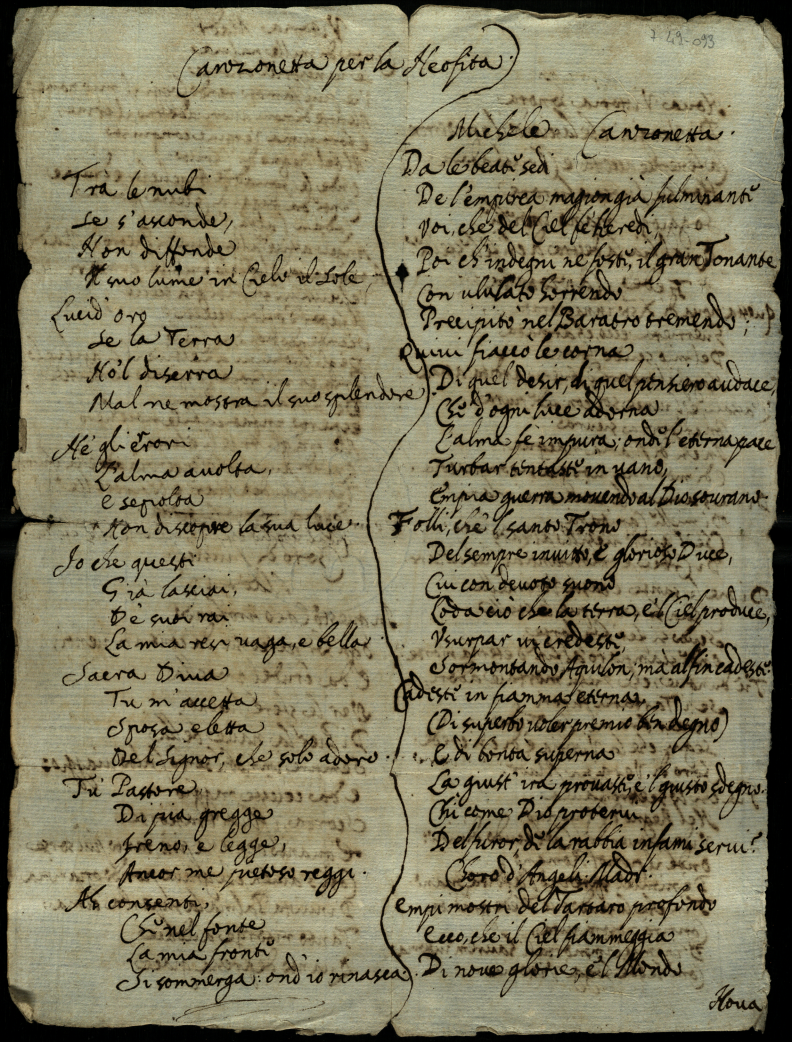 7-49-093
Canzonetta per la Neofita.
Trà le nubi
Se s'asconde,
Non diffonde
Il suo lume in Cielo il Sole,
Lucid' oro
Se la Terra
No'l diserra
Mal ne mostra il suo splendore
Nè gli errori
L'alma auolta,
E sepolta
Non discopre la sua luce.
Io che questi
Già lasciai,
De suoi rai
La mia resi uaga, e bella.
Sacra Diua
Tu m'accetta
Sposa eletta
Del Signor, che solo adoro.
Tu Pastore
Di pia gregge
Freno, e legge,
Ancor me pietoso reggi.
Ah consenti,
Che nel fonte
La mia fronte
Si sommerga: ond'io rinasca.
Michele Canzonetta.
Da le beate sedi
De l'empirea magion già fulminante
Voi, che del Ciel fe heredi,
Poi ch'indegni ne foste, il gran Tonante
Con ululato horrendo
Precipitò nel Baratro tremendo;
Quiui fiaccò le corna
Di quel desir, di quel pensiero audace,
Che d'ogni luce adorna
L'alma fè impura; onde l'eterna pace
Turbar tentaste in uano,
Empia guerra mouendo al Dio sourano.
Folli, che 'l santo Trono
Del sempre inuitto, e glorioso Duce,
Cui con deuoto suono
Loda ciò che la terra, e 'l Ciel produce,
Vsurpar ui credeste
Sormontando Aquilon; mà alfin cadeste.
Cadeste in fiamma eterna
(Di superbo uoler premio ben degno)
E di bontà superna
La giust' ira prouaste, e 'l giusto sdegno.
Chi come Dio proterui
Del furor, de la rabbia infami serui?
Choro d'Angeli Madr.
Empi mostri del Tartaro profondo
Ecco, che il Ciel fiammeggia
Di noue glorie, e 'l Mondo
Noua